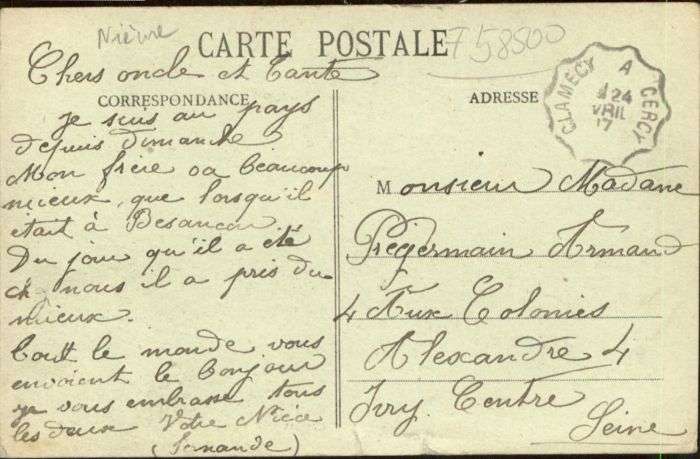 Nièvre
CARTE POSTALE
758500
Chers oncle et Tante
CORRESPONDANCE
je suis au pays
depuis dimanche
Mon frère va beaucoup
mieux, que lorsqu'il
était à Besancon
Du jour qu'il a été
ch nous il a pris du
mieux.
tout le monde vous
envoient le bonjour
je vous embrasse tous
les deux Votre Nièce
(Fernande)
CLAMECY A CERCY
24
VRIL
17
ADRESSE
Monsieur Madame
Prégermain Armand
4 Aux Colonies
Alexandre 4
Ivry Centre
Seine